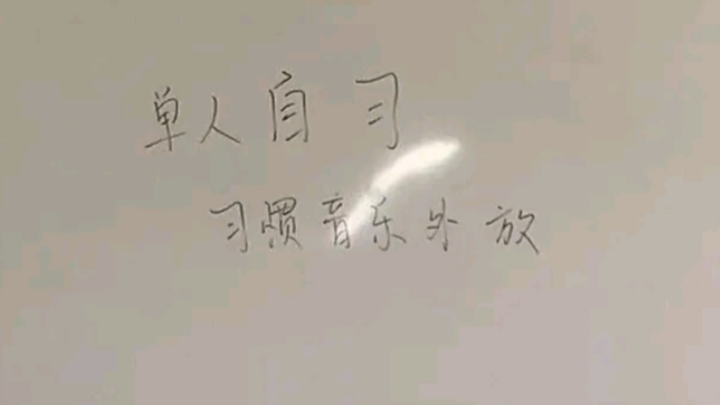 单人自习
习惯音乐外放